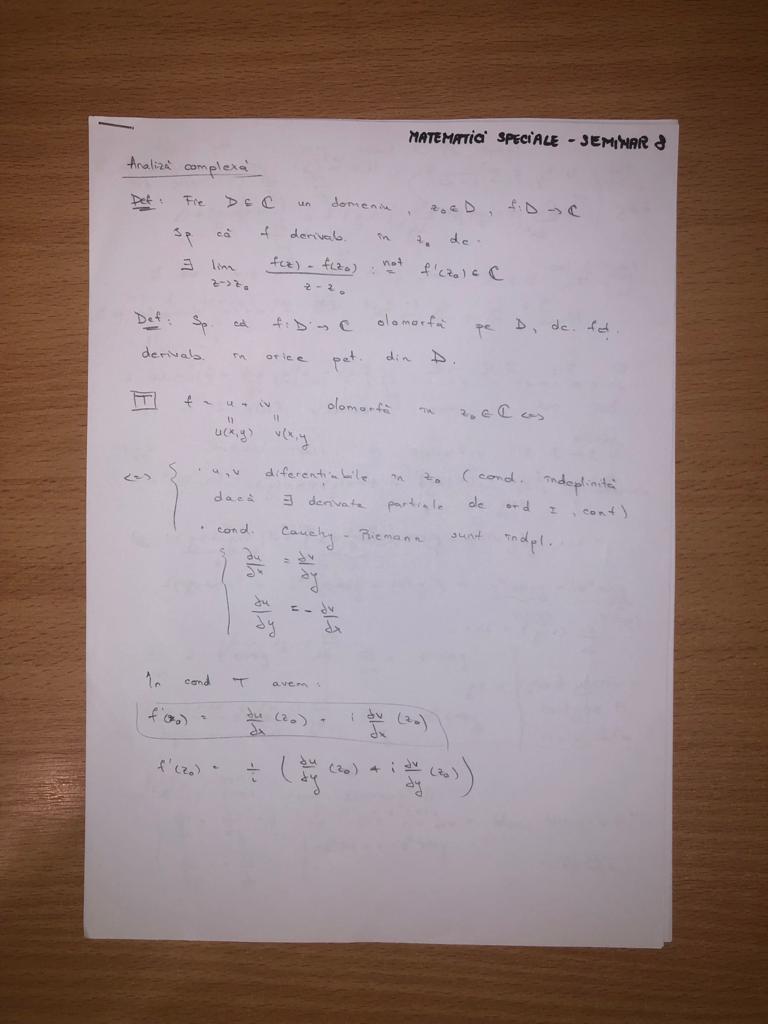 MATEMATICI SPECIALE - SEMINAR 8
Analiză complexă
Def: Fie D ∈ ℂ un domeniu, z₀ ∈ D, f: D → ℂ
Sp. că f derivab. în z₀ dc.
∃ lim_{z→z₀} (f(z) - f(z₀))/(z - z₀) : not= f'(z₀) ∈ ℂ
Def: Sp. că f: D → ℂ olomorfă pe D, dc. f e
derivab. în orice pct. din D.
T f = u + iv olomorfă în z₀ ∈ ℂ <=>
" "
u(x,y) v(x,y
<=> { • u, v diferențiabile în z₀ (cond. îndeplinită
dacă ∃ derivate parțiale de ord I, cont)
• cond. Cauchy - Riemann sunt îndpl.
{ ∂u/∂x = ∂v/∂y
∂u/∂y = - ∂v/∂x
În cond T avem:
f'(z₀) = ∂u/∂x (z₀) - i ∂v/∂x (z₀)
f'(z₀) = 1/i (∂u/∂y (z₀) + i ∂v/∂y (z₀))